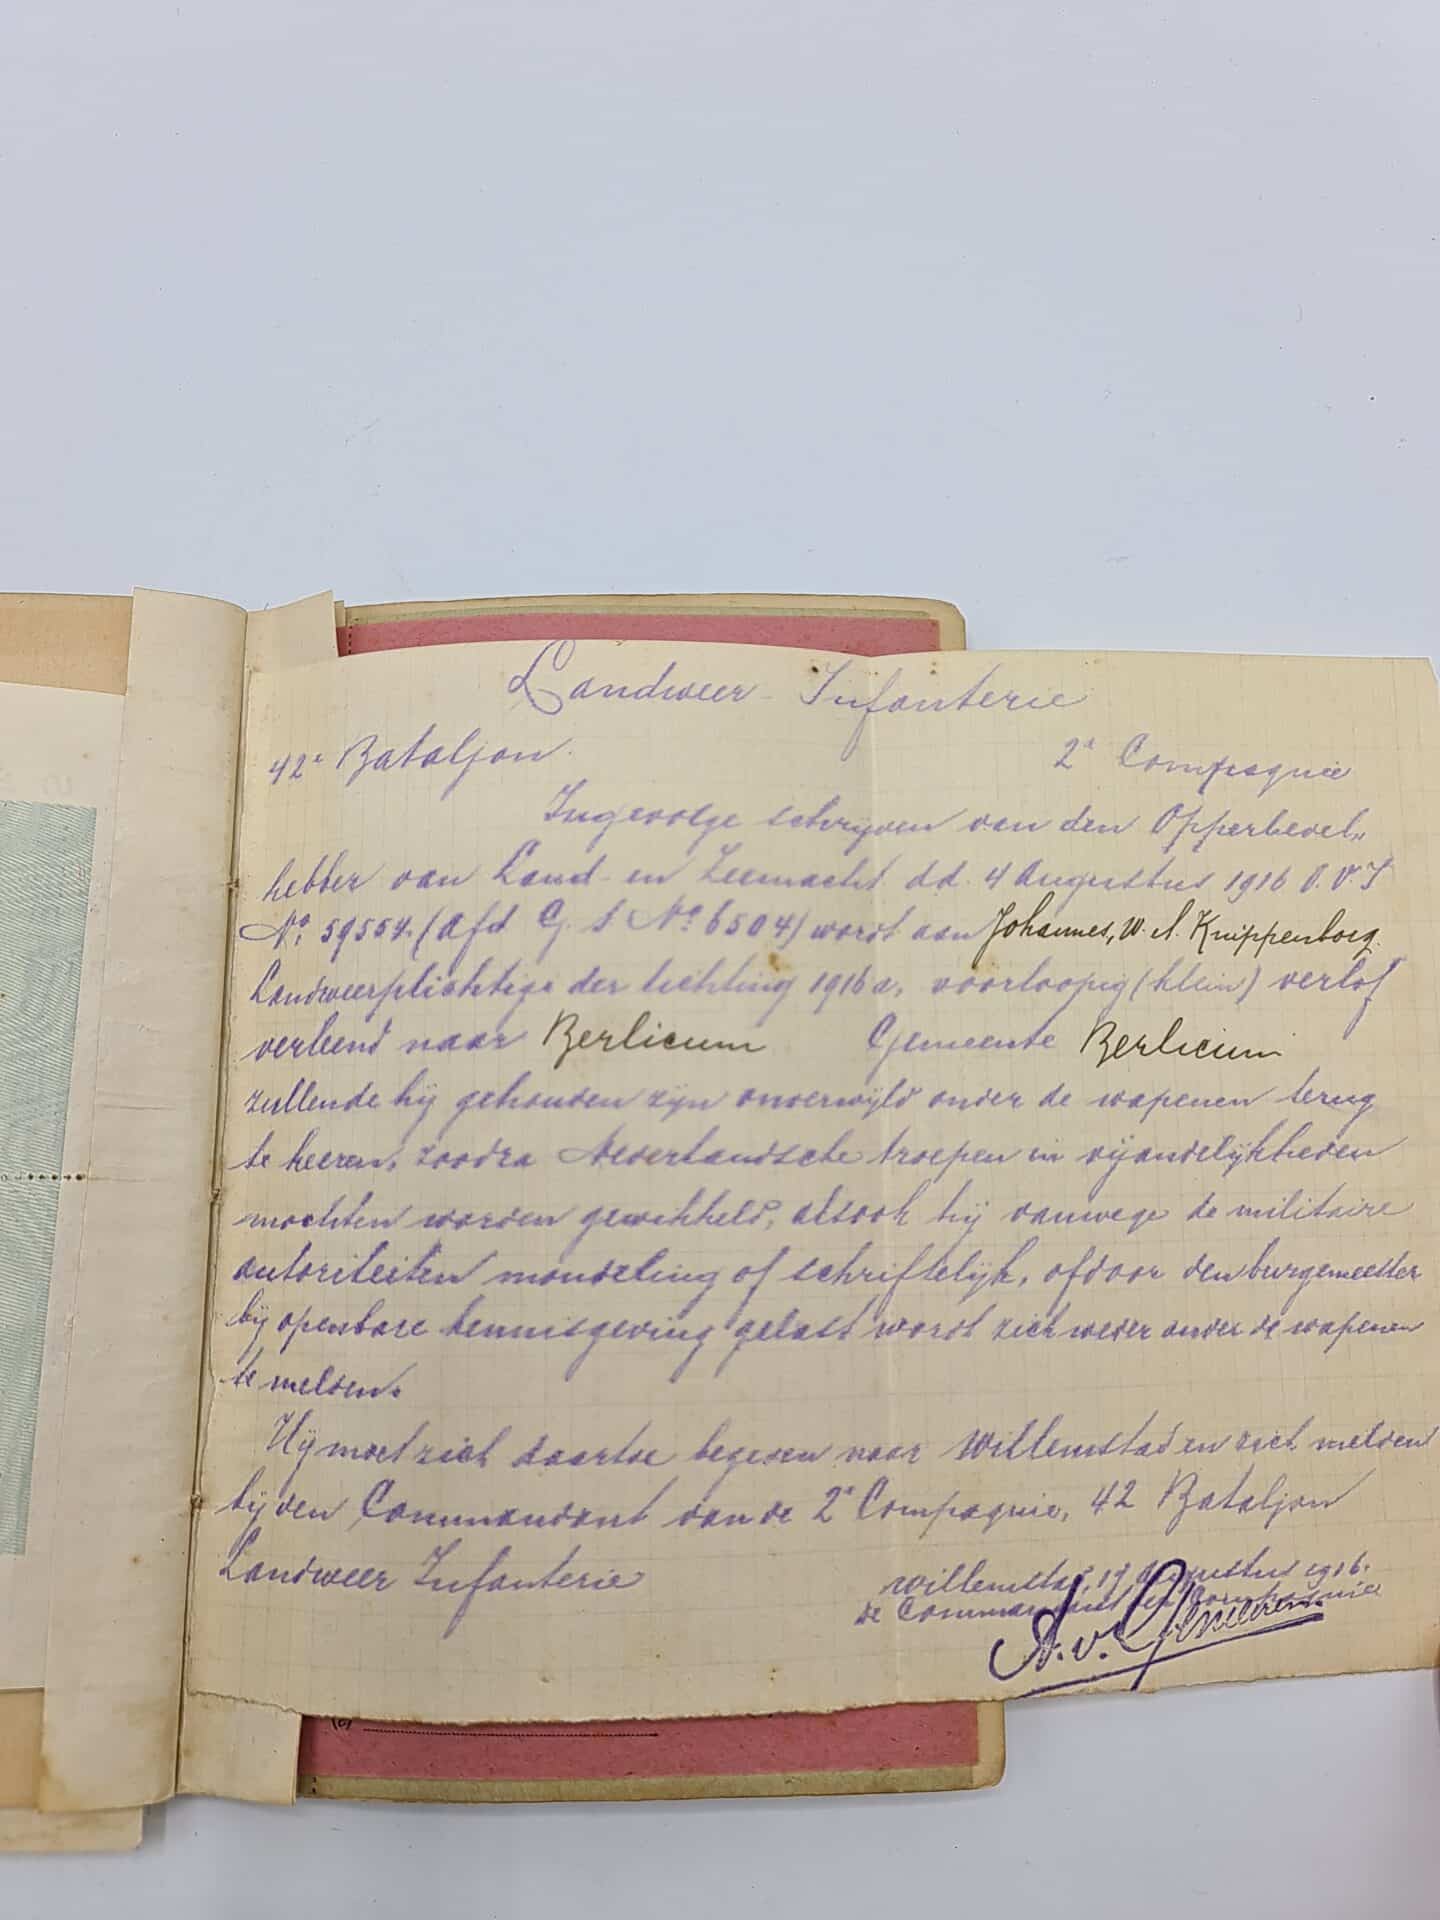 Landweer-Infanterie
42e Bataljon
2e Compagnie
Ingevolge schrijven van den Opperbevel„
hebber van Land- en Zeemacht dd. 4 Augustus 1916 O.V.I
No. 59554. (Afd G. S No. 6504) wordt aan Johannes, W. A. Knippenborg.
Landweerplichtige der lichting 1916a, voorloopig (klein) verlof
verleend naar Berlicum Gemeente Berlicum
zullende hij gehouden zijn onverwijld onder de wapenen terug
te keeren, zoodra Nederlandsche troepen in vijandelijkheden
mochten worden gewikkeld, alsook hij vanwege de militaire
autoriteiten mondeling of schriftelijk, of door den burgemeester
bij openbare kennisgeving gelast wordt zich weder onder de wapenen
te melden.
Hij moet zich daartoe begeven naar Willemstad en zich melden
bij den Commandant van de 2e Compagnie, 42 Bataljon
Landweer Infanterie
Willemstad, 19 Augustus 1916.
de Commandant der Compagnie
A. v.